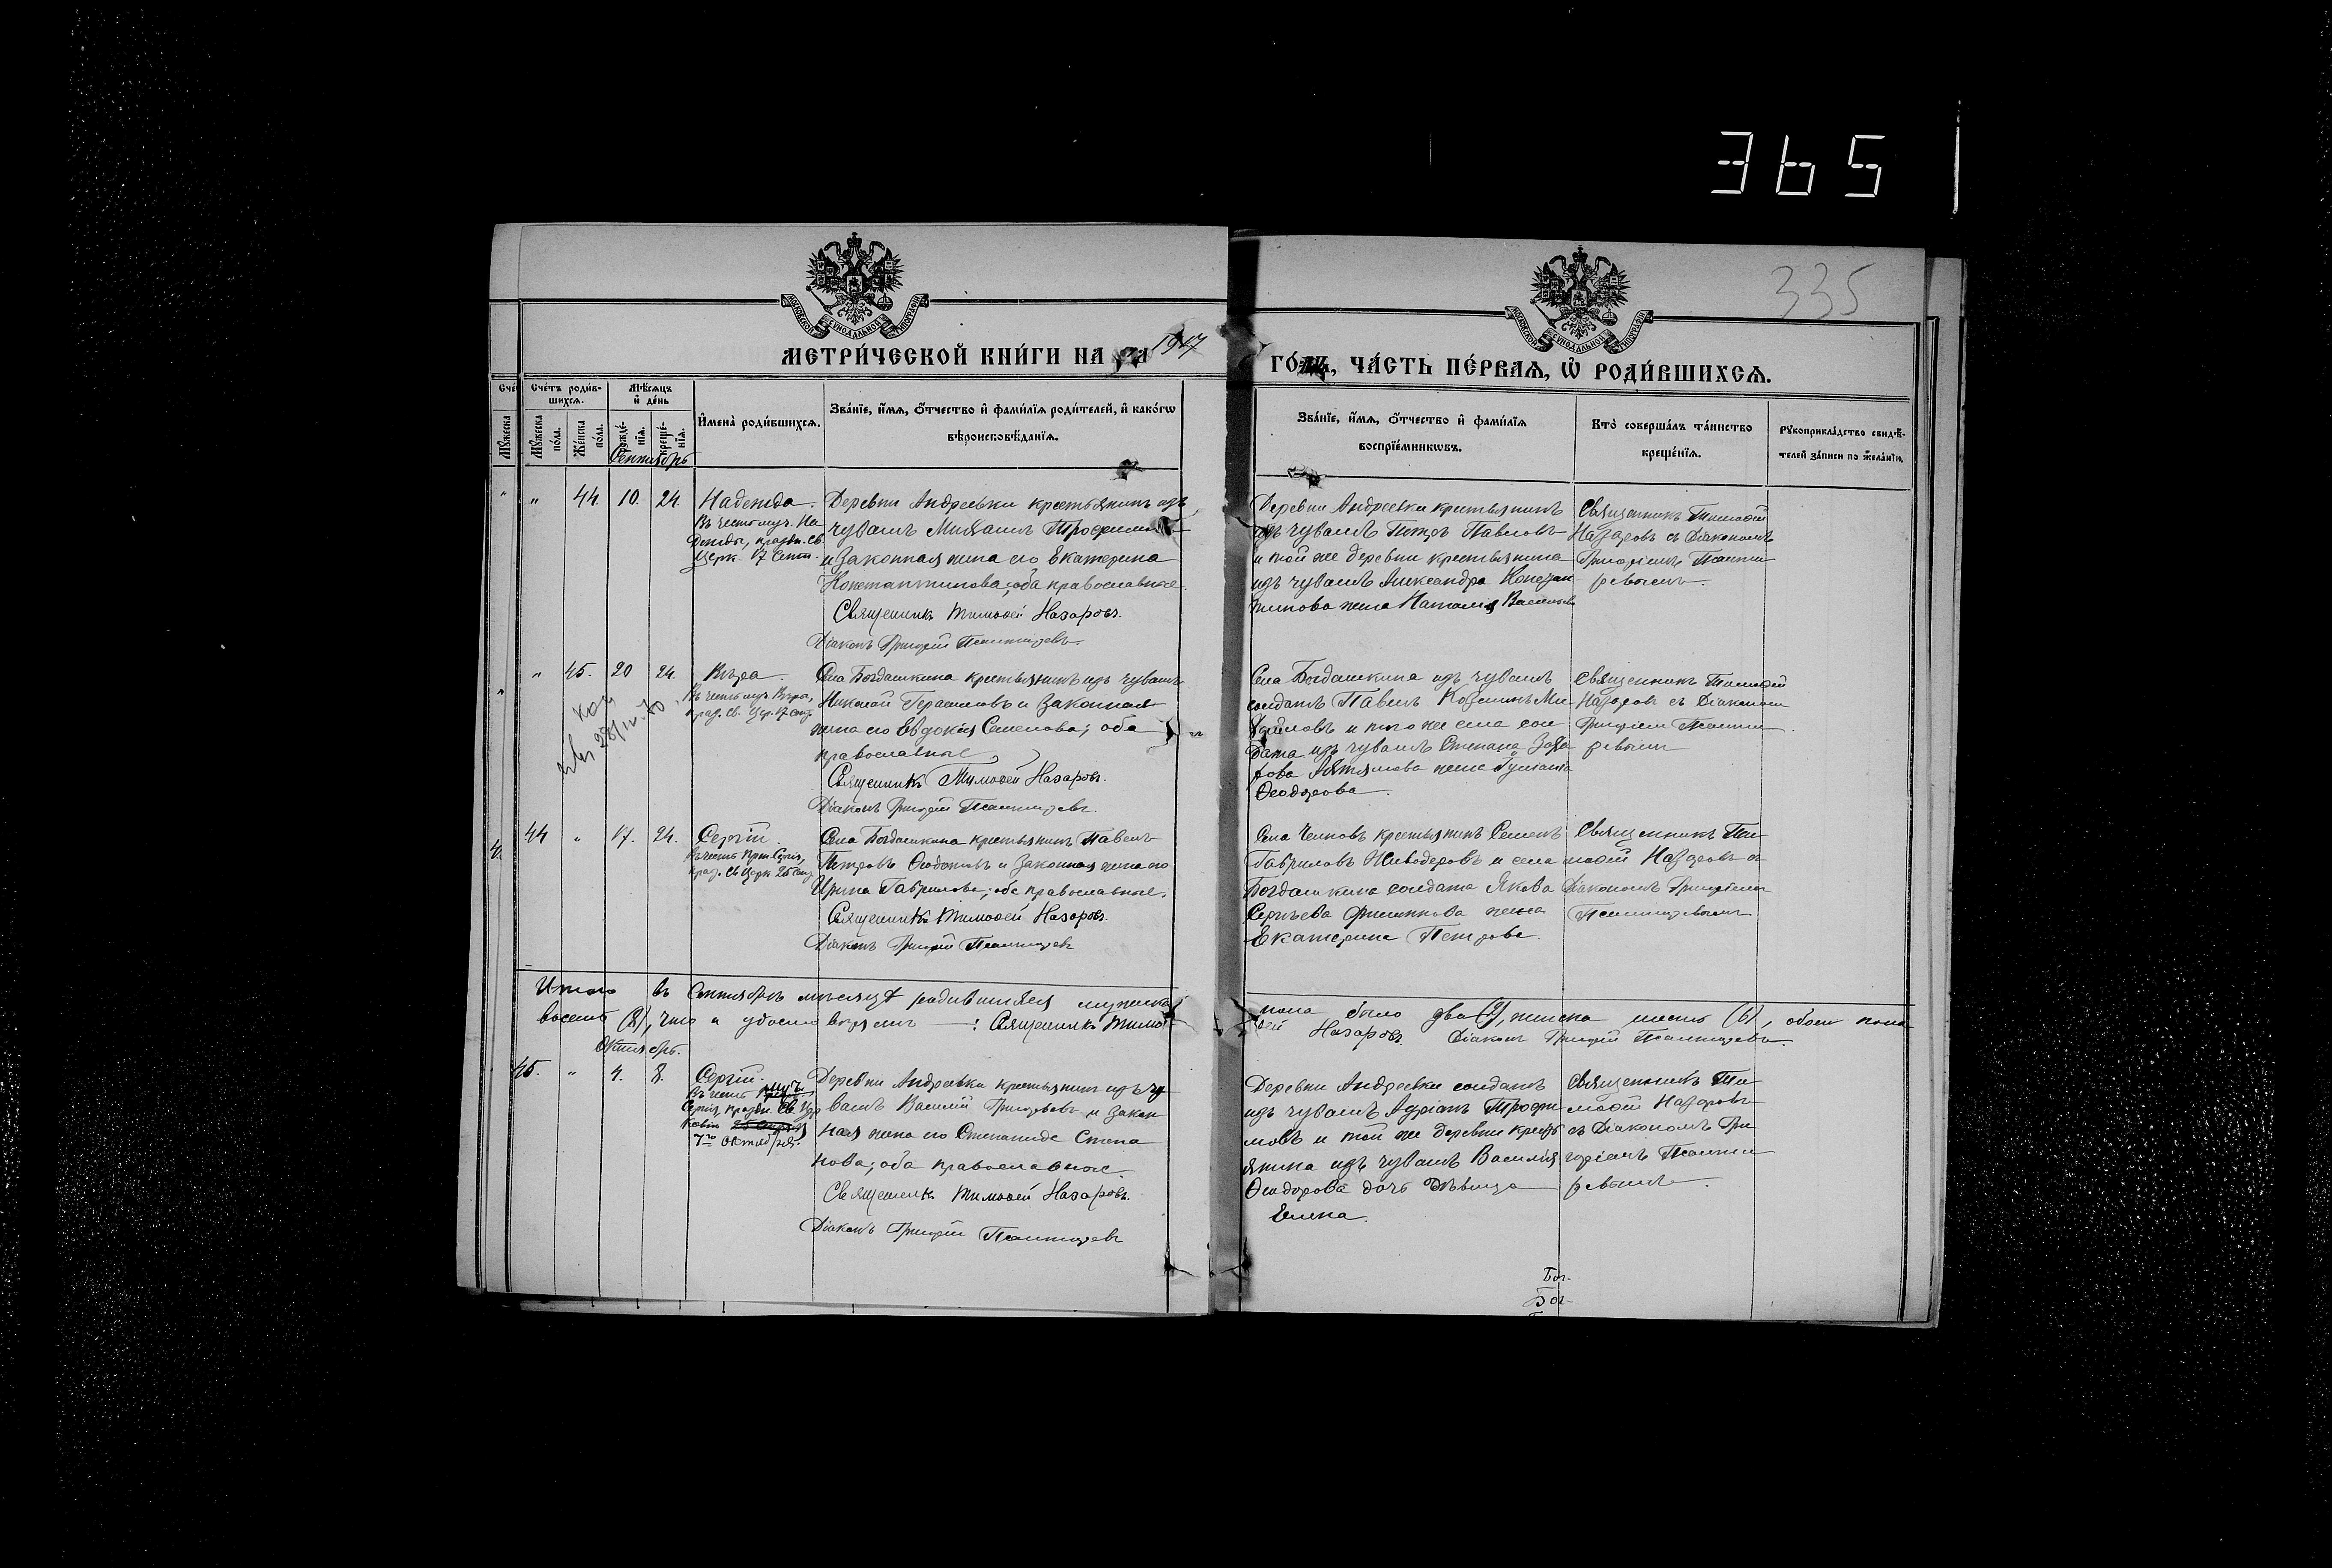 365
335
МЕТРИ́ЧЕСКОЙ КНИ́ГИ НА 1917 ГО́ДЪ, ЧА́СТЬ ПЕ́РВАЯ, Ѡ҆ РОДИ́ВШИХСЯ.
Сче́тъ роди́вшихся.
Мѣ́сяцъ и҆ де́нь
Мꙋ́жеска по́ла.
Же́нска по́ла.
рожде́нїя.
креще́нїя.
И҆мена̀ роди́вшихся.
Зва́нїе, и҆́мя, ѻ҆́тчество и҆ фами́лїя роди́телей, и҆ како́гѡ
вѣроисповѣ́данїя.
Зва́нїе, и҆́мя, ѻ҆́тчество и҆ фами́лїя
воспрїе́мникѡвъ.
Кто̀ соверша́лъ та́инство
креще́нїя.
Рꙋкоприкла́дство свидѣ́-
телей за́писи по жела́нїю.
Сентябрь
" 44 10. 24.
Надежда.
Въ честь муч. На
дежды, праздн. Св.
Церк. 17 Сент.
Деревни Андреевки крестьянинъ изъ
чувашъ Михаилъ Трофимовъ
и законная жена его Екатерина
Константинова; оба православные.
Священникъ Тимоѳей Назаровъ.
Діаконъ Григорій
Деревни Андреевки крестьянинъ
изъ чувашъ Петръ Павловъ
и той же деревни крестьянина
изъ чувашъ Александра Констан
тинова жена Наталія Васильева
Священникъ Тимоѳей
Назаровъ съ Діакономъ
Григоріемъ
" 45. 20 24.
Вѣра
Въ честь муч. Вѣры,
праз. Св. Цер. 17 Сент.
Села Богдашкина крестьянинъ изъ чувашъ
Николай Герасимовъ и законная
жена его Евдокія Семенова; оба
православные
Священникъ Тимоѳей Назаровъ.
Діаконъ Григорій
Села Богдашкина изъ чувашъ
солдатъ Павелъ Козминъ Ми
хайловъ и того же села сол
дата изъ чувашъ Степана Заха
рова жена Іуліанія
Ѳеодорова.
Священникъ Тимоѳей
Назаровъ съ Діакономъ
Григоріемъ
44 " 17. 24.
Сергій.
Въ честь Прп. Сергія,
праз. Св. Церк. 25 Сент.
Села Богдашкина крестьянинъ Павелъ
Петровъ Ѳедотовъ и законная жена его
Ирина Гаврилова; оба православные.
Священникъ Тимоѳей Назаровъ.
Діаконъ Григорій
Села крестьянинъ Семенъ
Гавриловъ Живодеровъ и села
Богдашкина солдата Якова
Сергѣева Филиппова жена
Екатерина Петрова.
Священникъ Ти
моѳей Назаровъ съ
Діакономъ Григоріемъ
Итого въ Сентябрѣ мѣсяцѣ родившихся мужска пола было два (2), женска шесть (6), обоего пола
восемь (8), что и удостовѣряемъ: Священникъ Тимоѳей Назаровъ. Діаконъ Григорій
Октябрь.
45. " 4. 8.
Сергій.
Въ честь муч.
Сергія, праздн. Св. Цер
ковію
7го Октября.
Деревни Андреевки крестьянинъ изъ чу
вашъ Василій Григорьевъ и закон
ная жена его Степанида Степа
нова; оба православные
Священникъ Тимоѳей Назаровъ.
Діаконъ Григорій
Деревни Андреевки солдатъ
изъ чувашъ Адріанъ Трофи
мовъ и той же деревни кресть
янина изъ чувашъ Василія
Ѳеодорова дочь дѣвица
Елена.
Священникъ Ти
моѳей Назаровъ
съ Діакономъ Гри
горіемъ
Бог-
Бог-